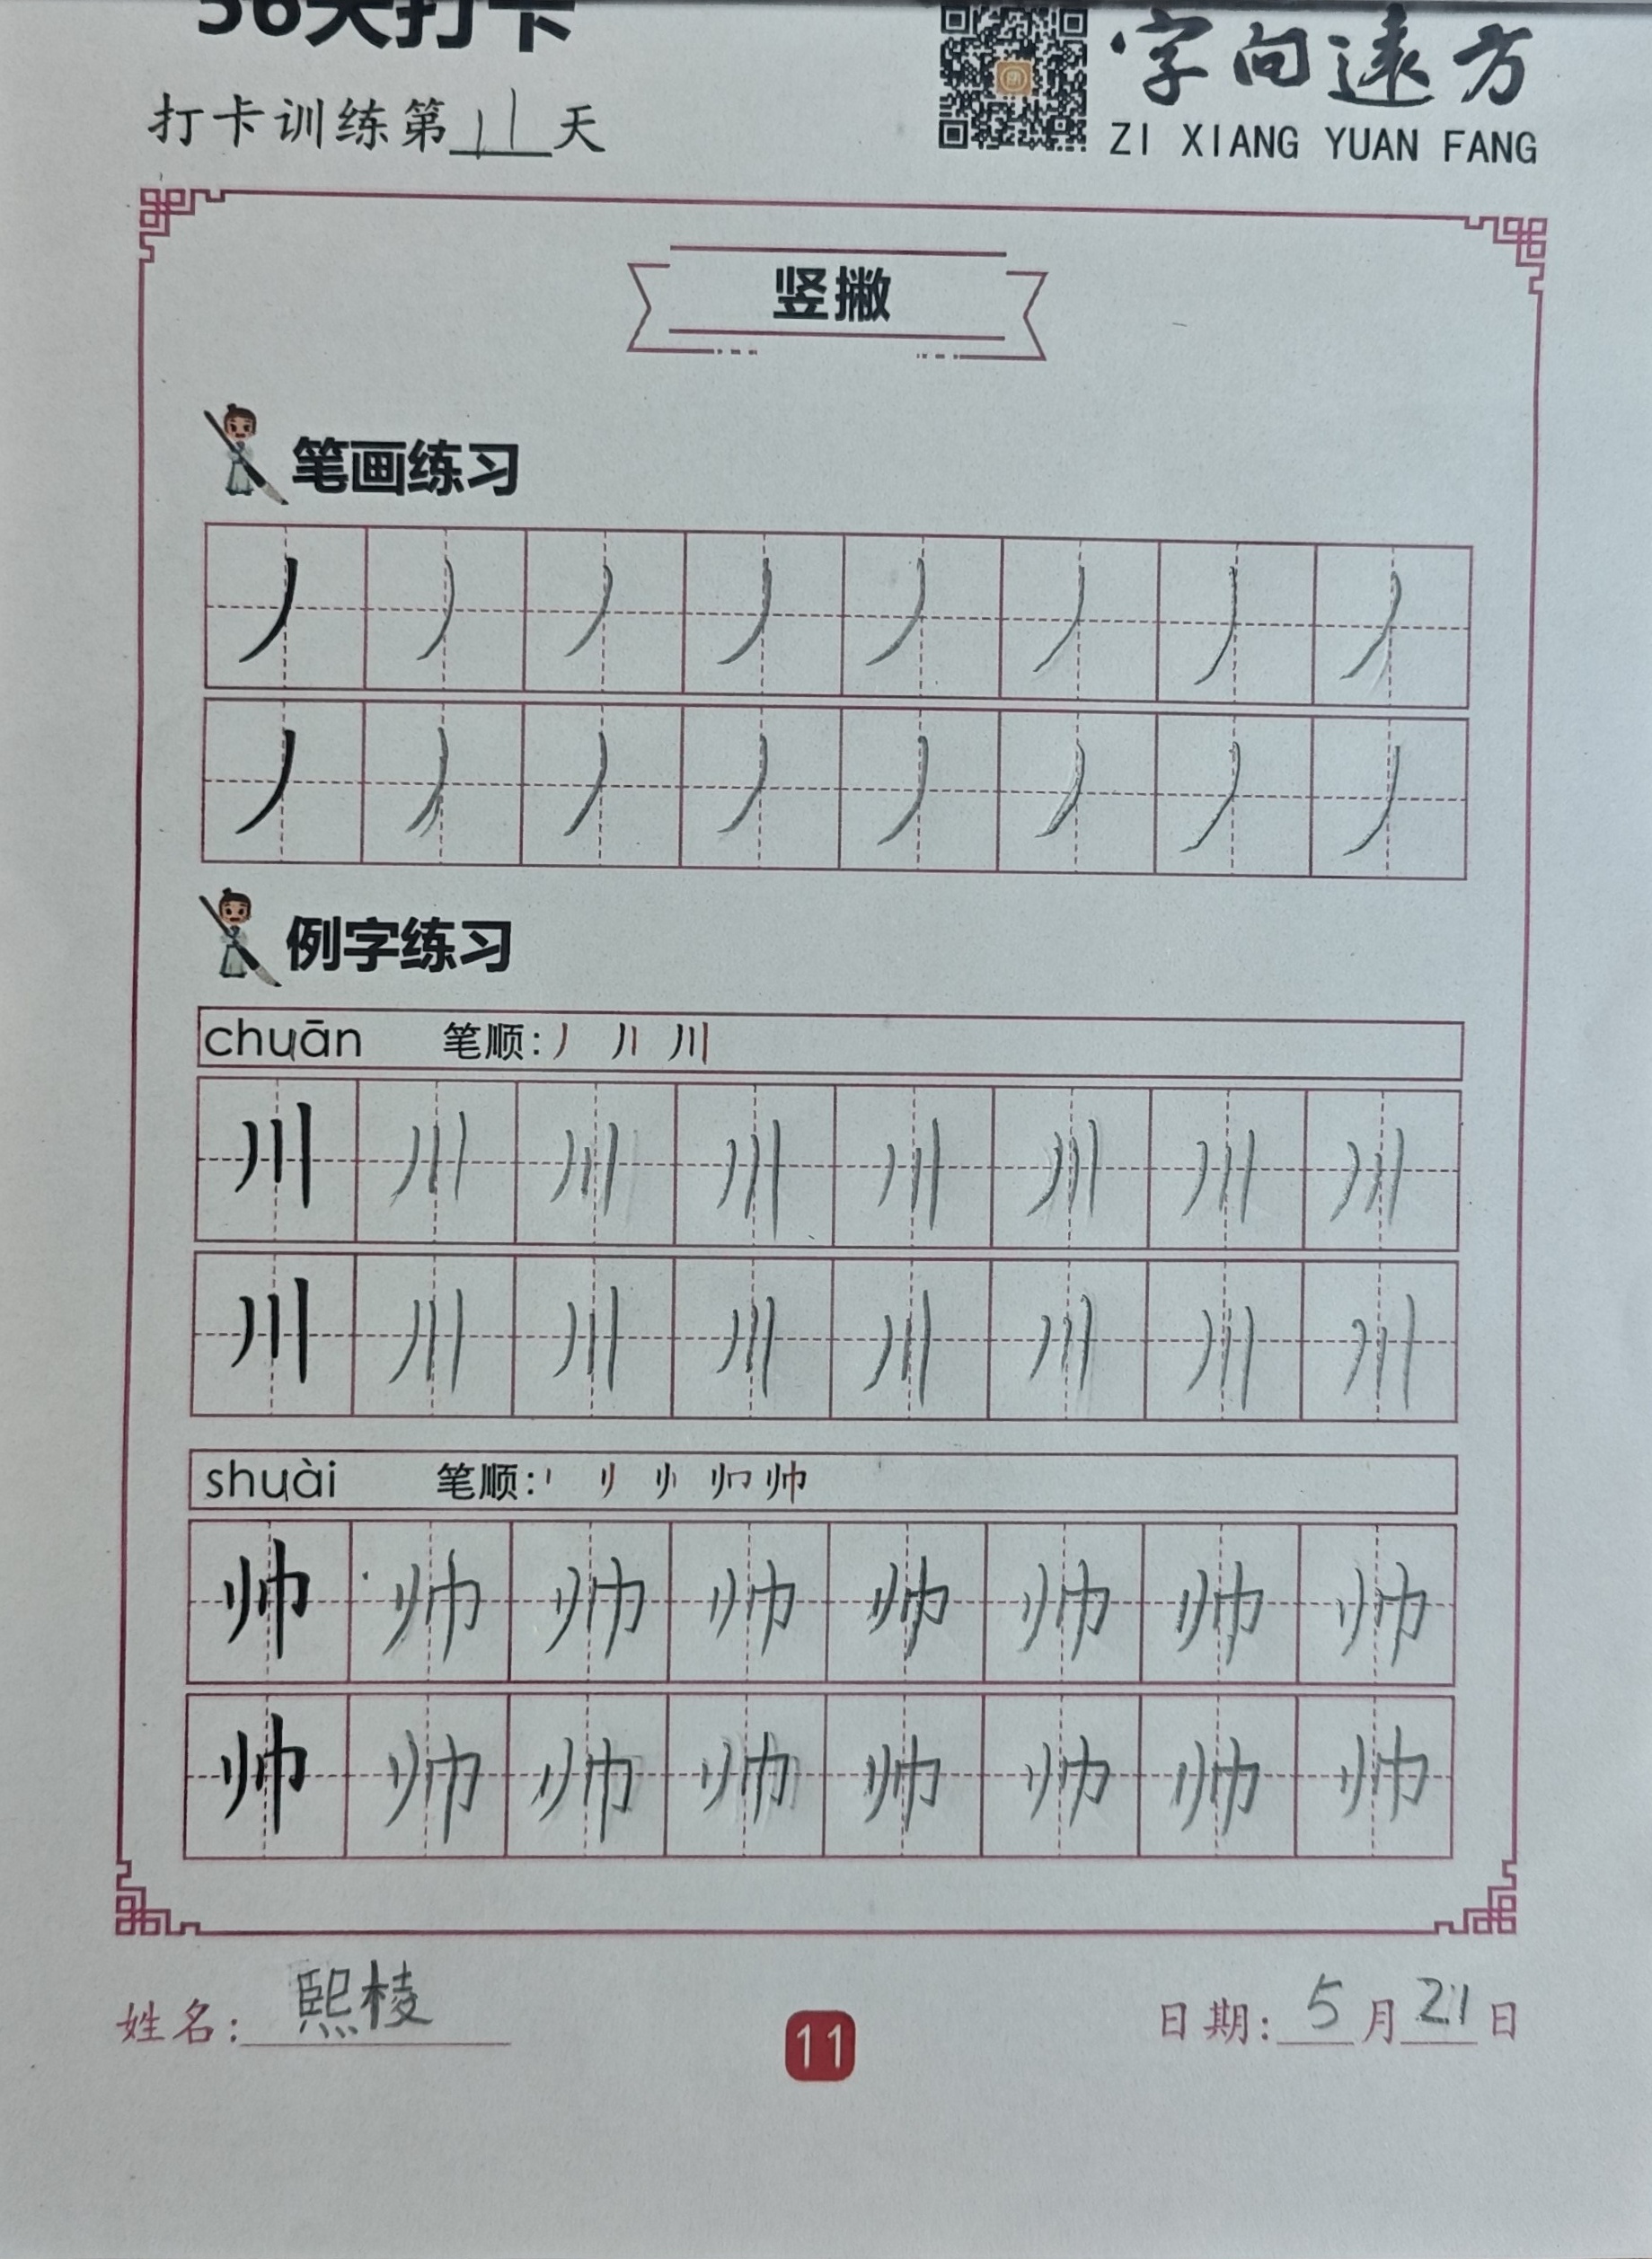 36天打卡
字向远方
打卡训练第11天
ZI XIANG YUAN FANG
竖撇
笔画练习
丿 丿 丿 丿 丿 丿 丿 丿
丿 丿 丿 丿 丿 丿 丿 丿
例字练习
chuān 笔顺:丿 丿丨 川
川 川 川 川 川 川 川 川
川 川 川 川 川 川 川 川
shuài 笔顺: 帅
帅 帅 帅 帅 帅 帅 帅 帅
帅 帅 帅 帅 帅 帅 帅 帅
姓名: 熙棱
11
日期: 5月21日